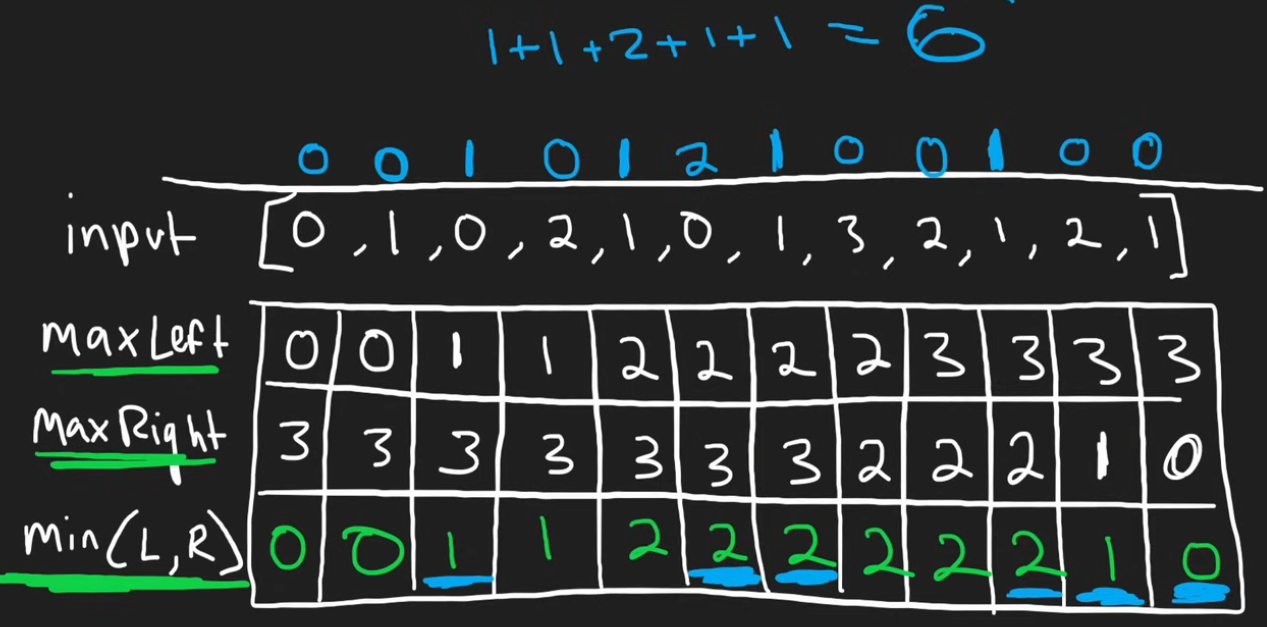 1+1+2+1+1 = 6
0 0 1 0 1 2 1 0 0 1 0 0
input [0,1,0,2,1,0,1,3,2,1,2,1]
maxLeft 0 0 1 1 2 2 2 2 3 3 3 3
maxRight 3 3 3 3 3 3 3 2 2 2 1 0
min(L,R) 0 0 1 1 2 2 2 2 2 2 1 0